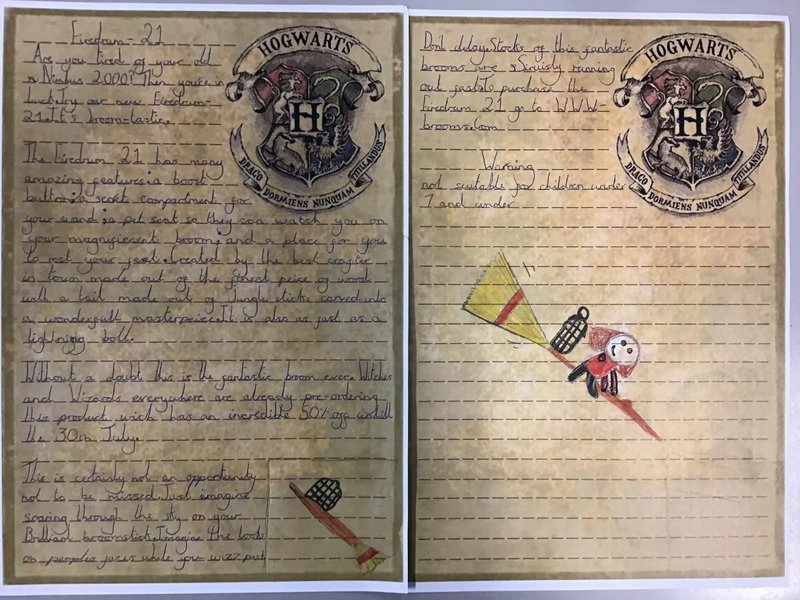 Firedrum-21
Are you tired of your old
Nimbus 2000? Then you're in
luck. Try our new Firedrum-
21. It's broom-tastic.
The Firedrum 21 has many
amazing features: a boost
button; a secret compartment for
your wand; a pet seat so they can watch you on
your magnificent broom; and a place for you
to rest your feet. Created by the best crafter
in town made out of the finest peice of wood
with a tail made out of Jungle sticks carved into
a wonderfull masterpeice. It is also as fast as a
lightning bolt.
Without a doubt this is the fantastic broom ever. Witches
and Wizards everywhere are already pre-ordering
this product wich has an incredible 50% off untill
the 30th July.
This is certainly not an opportunity
not to be missed. Just emagine
soaring through the sky on your
Brilliant broomstick. Imagine the looks
on peoples faces while you wizz past
HOGWARTS
H
DRACO DORMIENS NUNQUAM TITILLANDUS
Dont delay. Stocks of this fantastic
brooms are running
out fast to purchase the
Firedrum 21 go to WWW.
brooms.com
Warning
not suitable for children under
7 and under
HOGWARTS
H
DRACO DORMIENS NUNQUAM TITILLANDUS